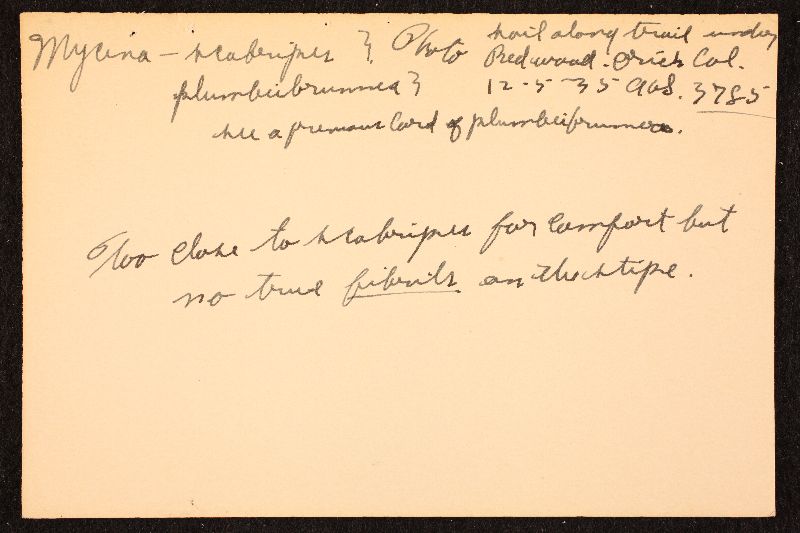 Mycena - scabripes } Photo soil along trail under
Redwood. Orick Cal.
plumbeibrunnea } 12-5-35 AHS. 3785
see a previous Card of plumbeibrunnea.
Too close to scabripes for comfort but
no true fibrils on the stipe.